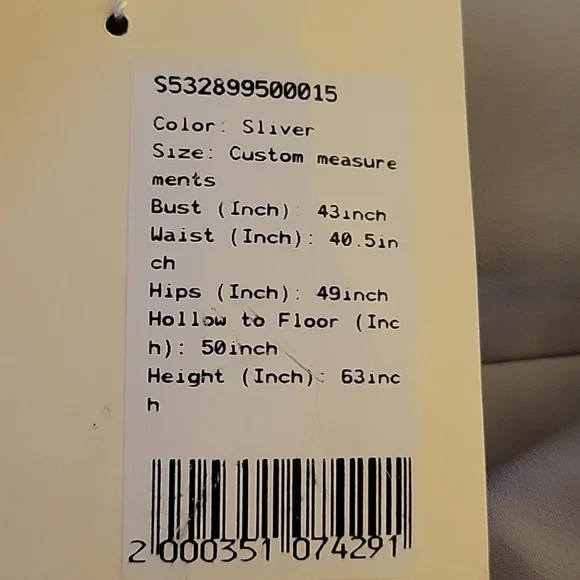 S532899500015
Color: Sliver
Size: Custom measure
ments
Bust (Inch): 43inch
Waist (Inch): 40.5in
ch
Hips (Inch): 49inch
Hollow to Floor (Inc
h): 50inch
Height (Inch): 63inc
h
2 000351 074291